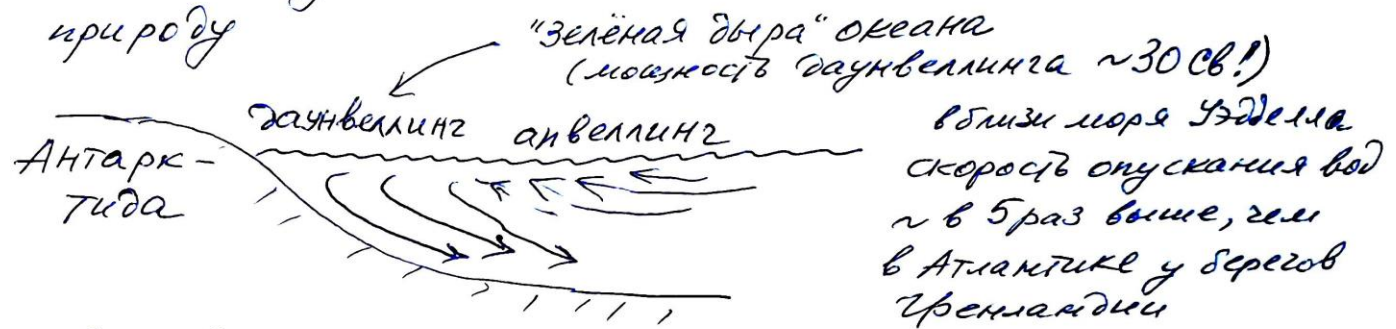 природу
"Зелёная дыра" океана
(мощность даунвеллинга ~30 Св!)
даунвеллинг апвеллинг
Антарк-
тида
вблизи моря Уэдделла
скорость опускания вод
~ в 5 раз выше, чем
в Атлантике у берегов
Гренландии